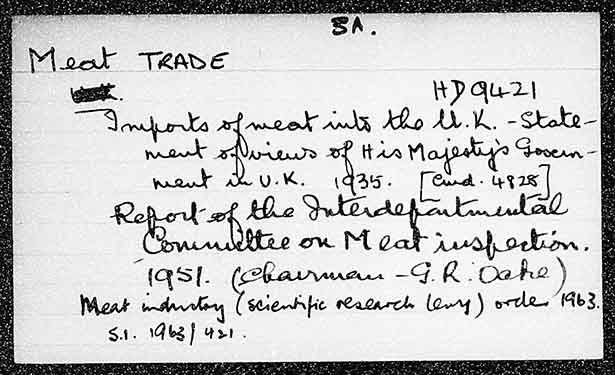 SA.
Meat TRADE
HD9421
Imports of meat into the U.K. - State-
ment of views of His Majesty's Govern-
ment in U.K. 1935. [Cmd. 4828]
Report of the Interdepartmental
Committee on Meat inspection.
1951. (Chairman - G.R. Oake)
Meat industry (scientific research levy) order 1963.
S.I. 1963/421.